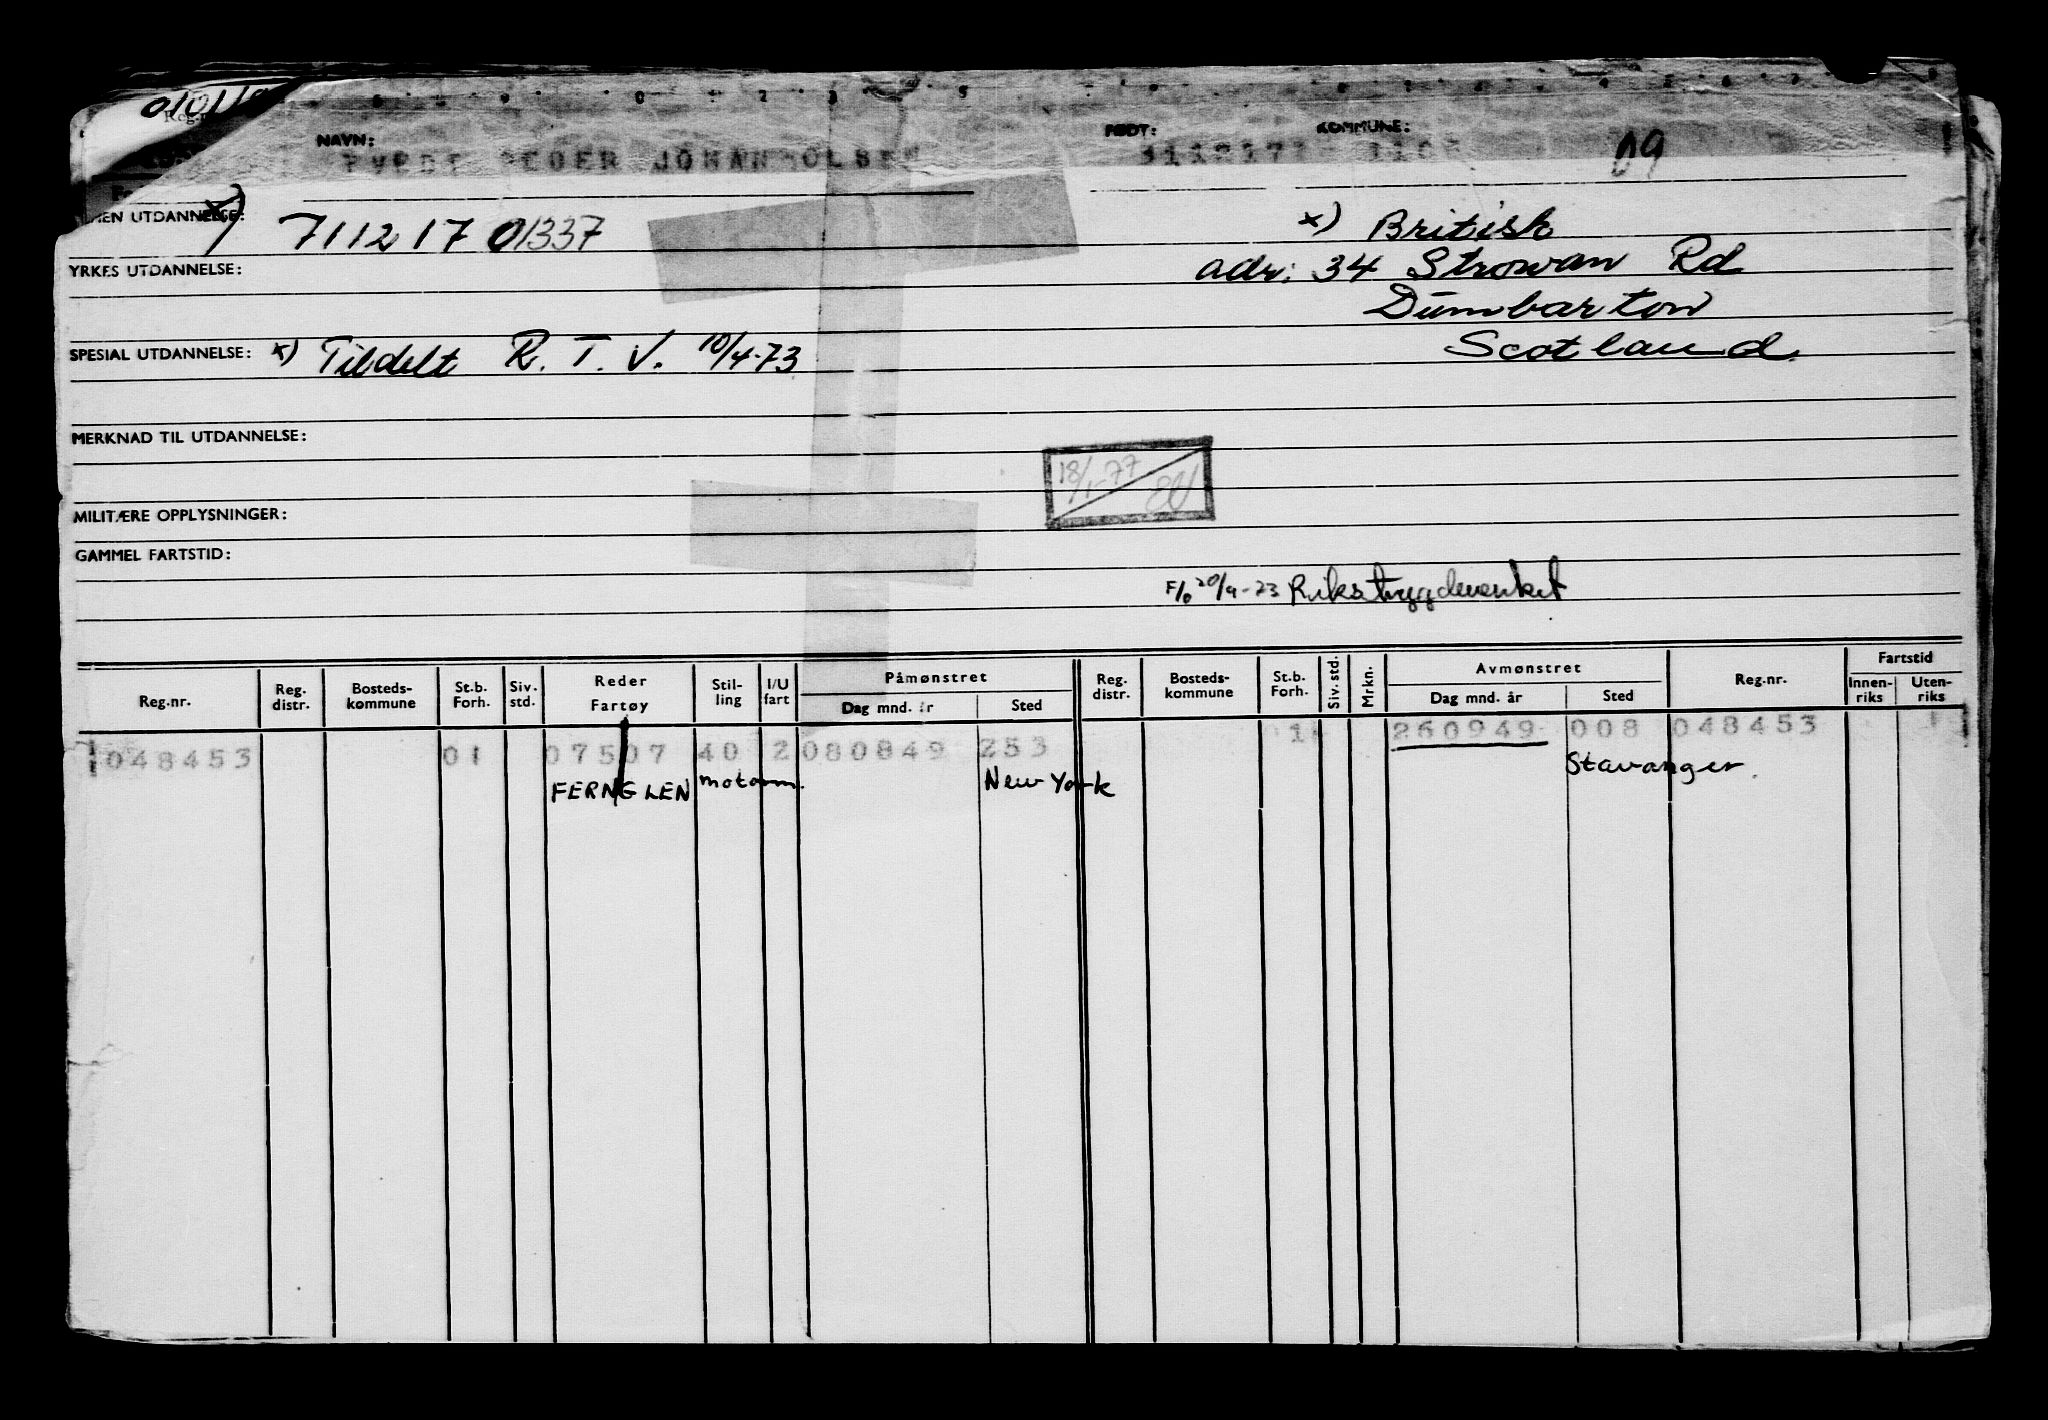 NAVN: FØDT: KOMMUNE:
PEDER JOHAN OLSEN 09
UTDANNELSE: x) 711217 01337 x) British
YRKES UTDANNELSE: adr: 34 Strowan Rd
Dumbarton
SPESIAL UTDANNELSE: x) Tildelt R.T.V. 10/4-73 Scotland
MERKNAD TIL UTDANNELSE:
18/1-77
MILITÆRE OPPLYSNINGER:
GAMMEL FARTSTID:
Rikstrygdeverket
Reg.nr. Reg. distr. Bosteds-kommune St.b. Forh. Siv. std. Reder Fartøy Stil-ling I/U fart Påmønstret Dag mnd. år Sted Reg. distr. Bosteds-kommune St.b. Forh. Siv. std. Mrkn. Avmønstret Dag mnd. år Sted Reg.nr. Fartstid Innen-riks Uten-riks
048453 01 07507 40 2 080849 253 1 260949 008 048453 1
FERNGLEN motorm. New York Stavanger.